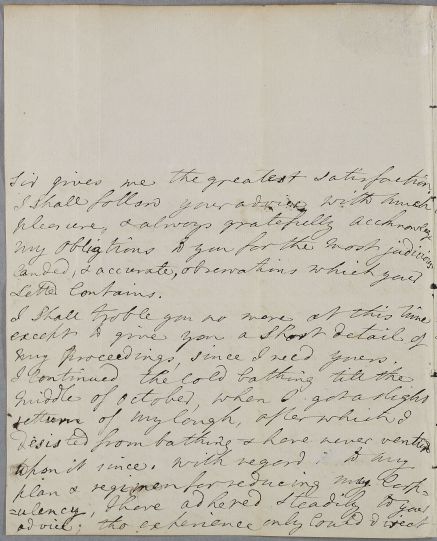 Sir gives me the greatest satisfaction
I shall follow your advice with much
pleasure, & always gratefully acknowledge
my obligations to you for the most judicious
candid, & accurate, observations which your
Letter Contains.
I shall troble you no more at this time
except to give you a short detail of
my proceedings, since I rec'd yours.
I Continued the Cold bathing till the
middle of October, when I got a slight
return of my Cough, after which I
desisted from bathing & have never ventur'd
upon it since. with regard to my
plan & regimen for reducing my Corp-
=ulency, I have adhered steadily to your
advice; tho experience only Could direct